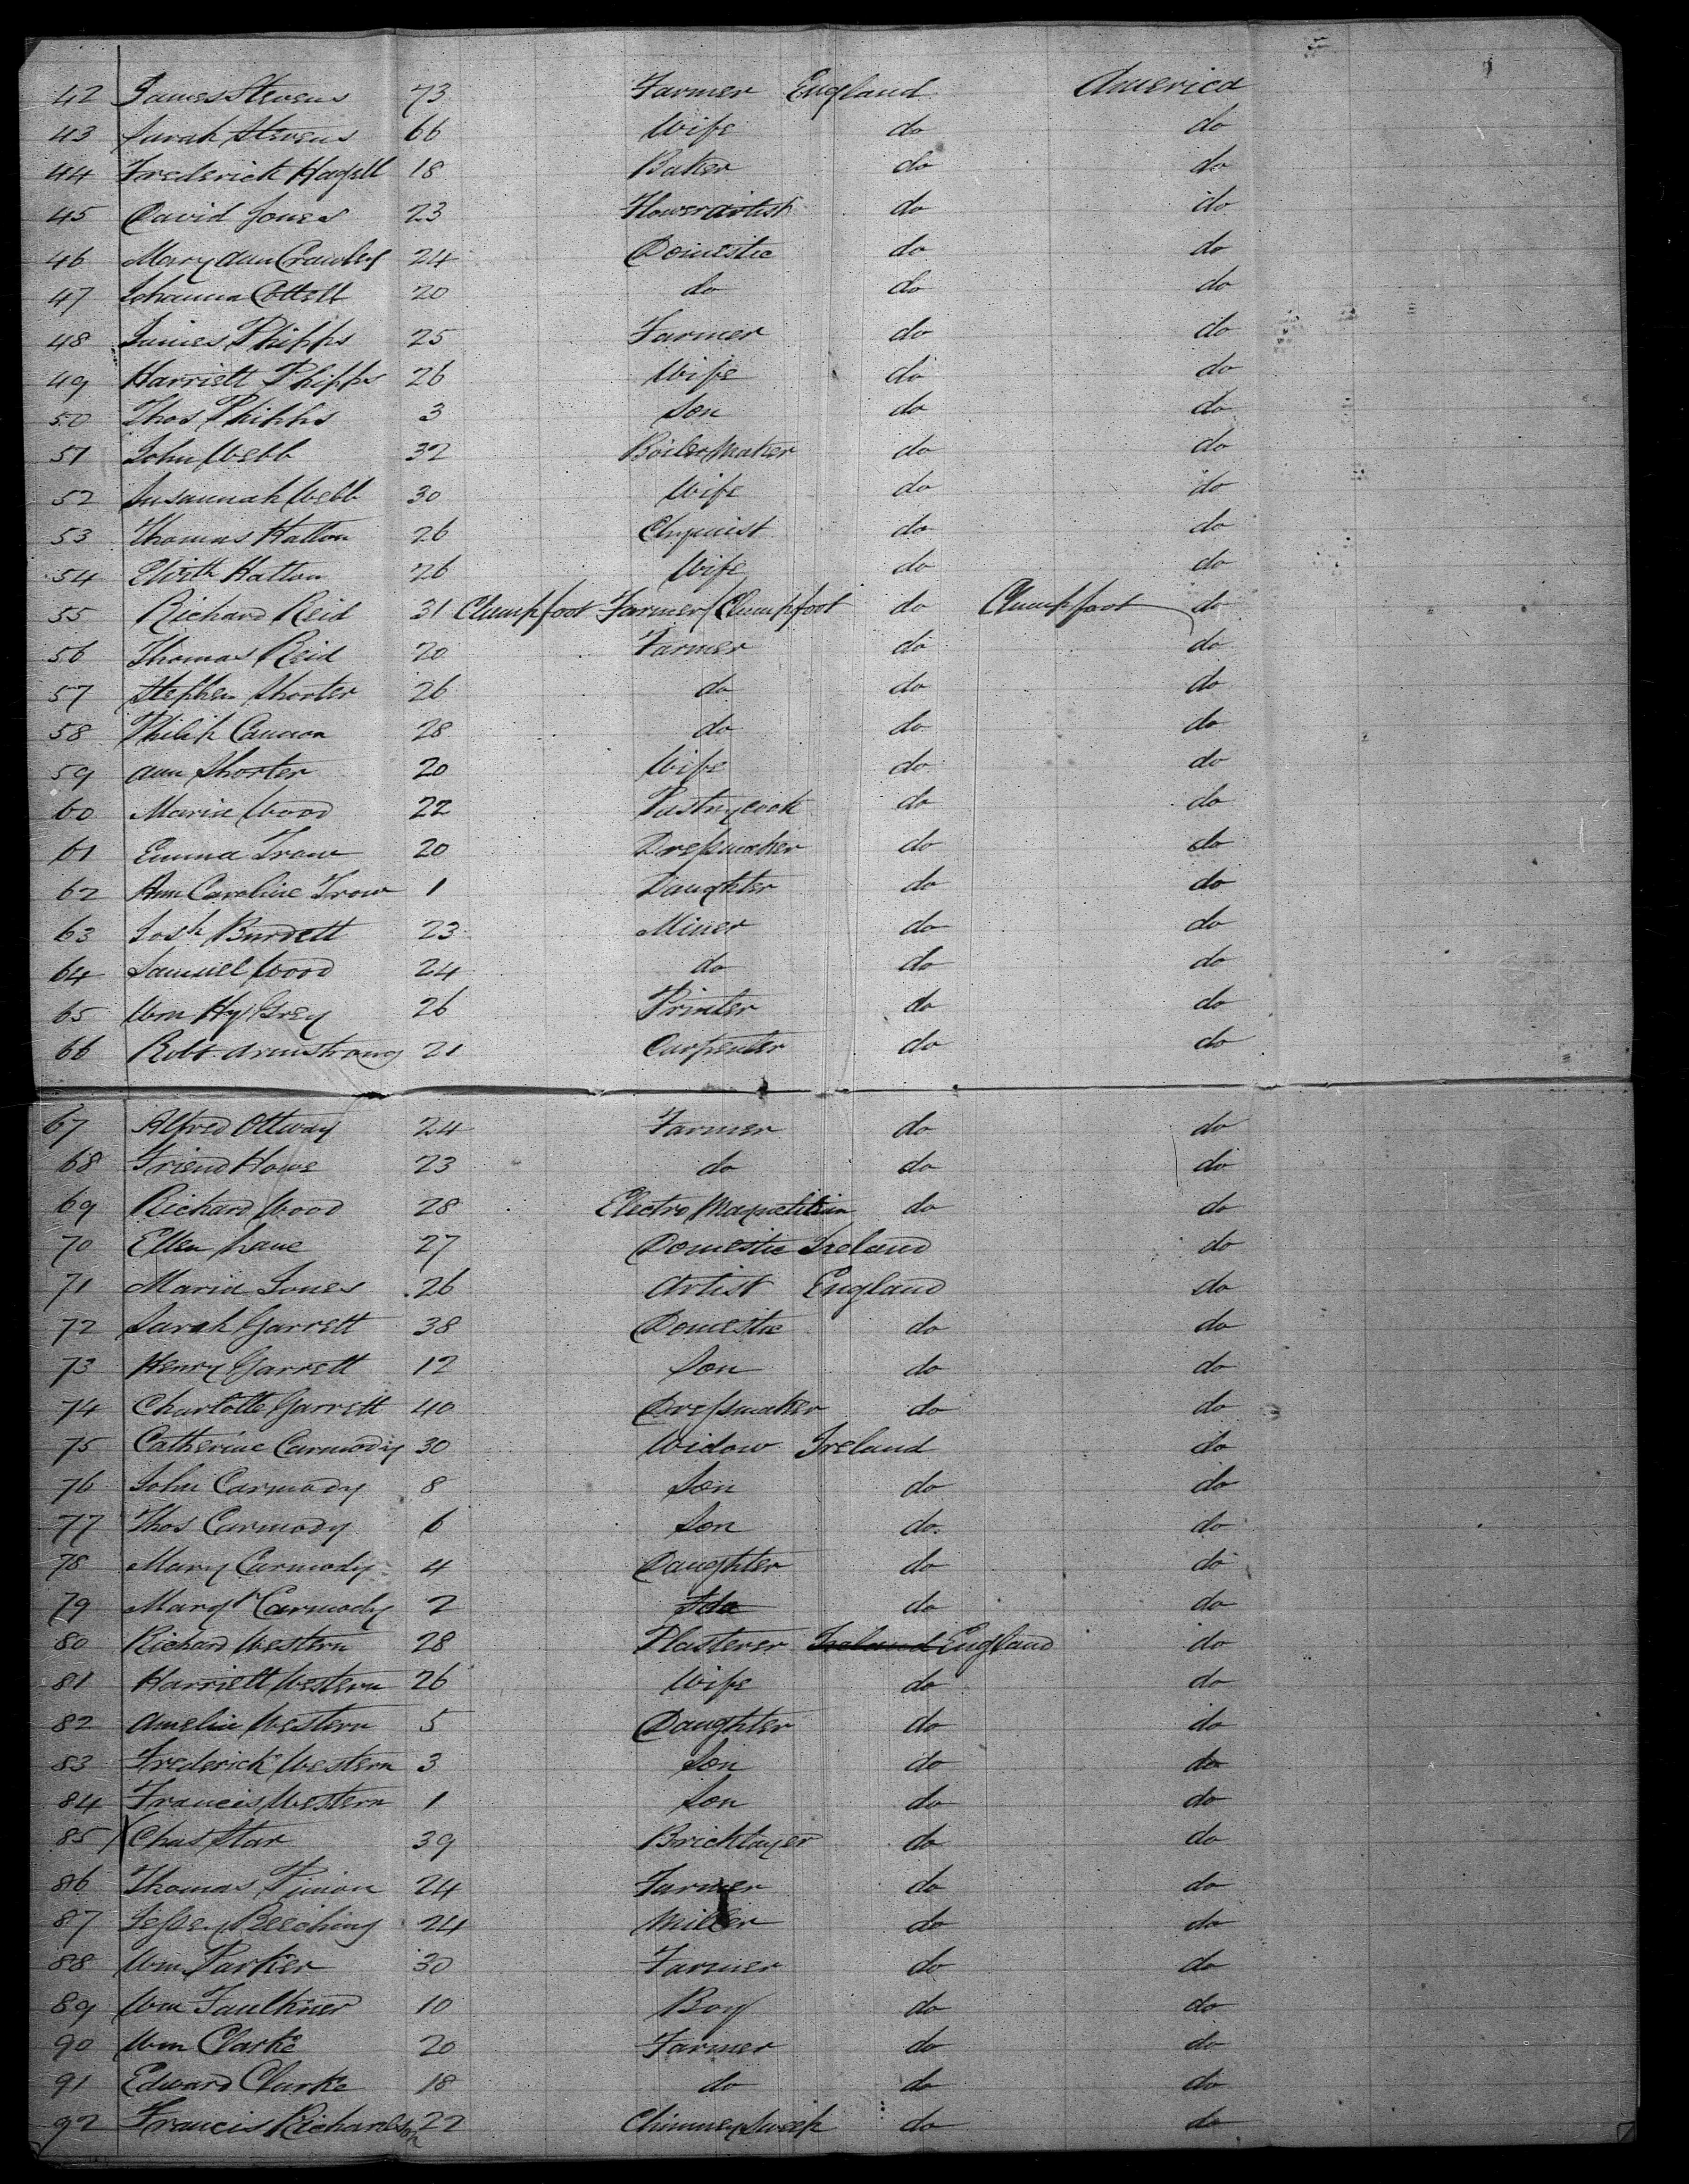 42 James Stevens 73 Farmer England America
43 Sarah Stevens 66 Wife do do
44 Frederick 18 Baker do do
45 David Jones 23 Flower artist do do
46 Mary Ann Crawley 24 Domestic do do
47 Johanna Cottell 20 do do do
48 James Phipps 25 Farmer do do
49 Harriett Phipps 26 Wife do do
50 Thos Phipps 3 Son do do
51 John Webb 32 Boiler Maker do do
52 Susannah Webb 30 Wife do do
53 Thomas Hatton 26 do do
54 Elizth Hatton 26 Wife do do
55 Richard Reid 31 Clumpfoot Farmer/Clumpfoot do Clumpfoot do
56 Thomas Reid 20 Farmer do do
57 Stephen Shorter 26 do do do
58 Philip Cannon 28 do do do
59 Ann Shorter 20 Wife do do
60 Maria Wood 22 Pastrycook do do
61 Emma Trow 20 Dressmaker do do
62 Ann Caroline Trow 1 Daughter do do
63 Josh Burdett 23 Miner do do
64 Samuel Wood 24 do do do
65 Wm Hy Grey 26 Printer do do
66 Robt Armstrong 21 Carpenter do do
67 Alfred Ottway 24 Farmer do do
68 Friend Howe 23 do do do
69 Richard Wood 28 Electro Magnetitian do do
70 Ellen Lane 27 Domestic Ireland do
71 Maria Jones 26 Artist England do
72 Sarah Garrett 38 Domestic do do
73 Henry Garrett 12 Son do do
74 Charlotte Garrett 40 Dressmaker do do
75 Catherine Carmody 30 Widow Ireland do
76 John Carmody 8 Son do do
77 Thos Carmody 6 Son do do
78 Mary Carmody 4 Daughter do do
79 Margt Carmody 2 do do do
80 Richard Western 28 Plasterer Ireland England do
81 Harriett Western 26 Wife do do
82 Amelia Western 5 Daughter do do
83 Frederick Western 3 Son do do
84 Francis Western 1 Son do do
85 Chas Star 39 Bricklayer do do
86 Thomas 24 Farmer do do
87 Jesse Beeching 24 Miller do do
88 Wm Parker 30 Farmer do do
89 Wm Faulkner 10 Boy do do
90 Wm Clarke 20 Farmer do do
91 Edward Clarke 18 do do do
92 Francis Richardson 22 Chimney Sweep do do